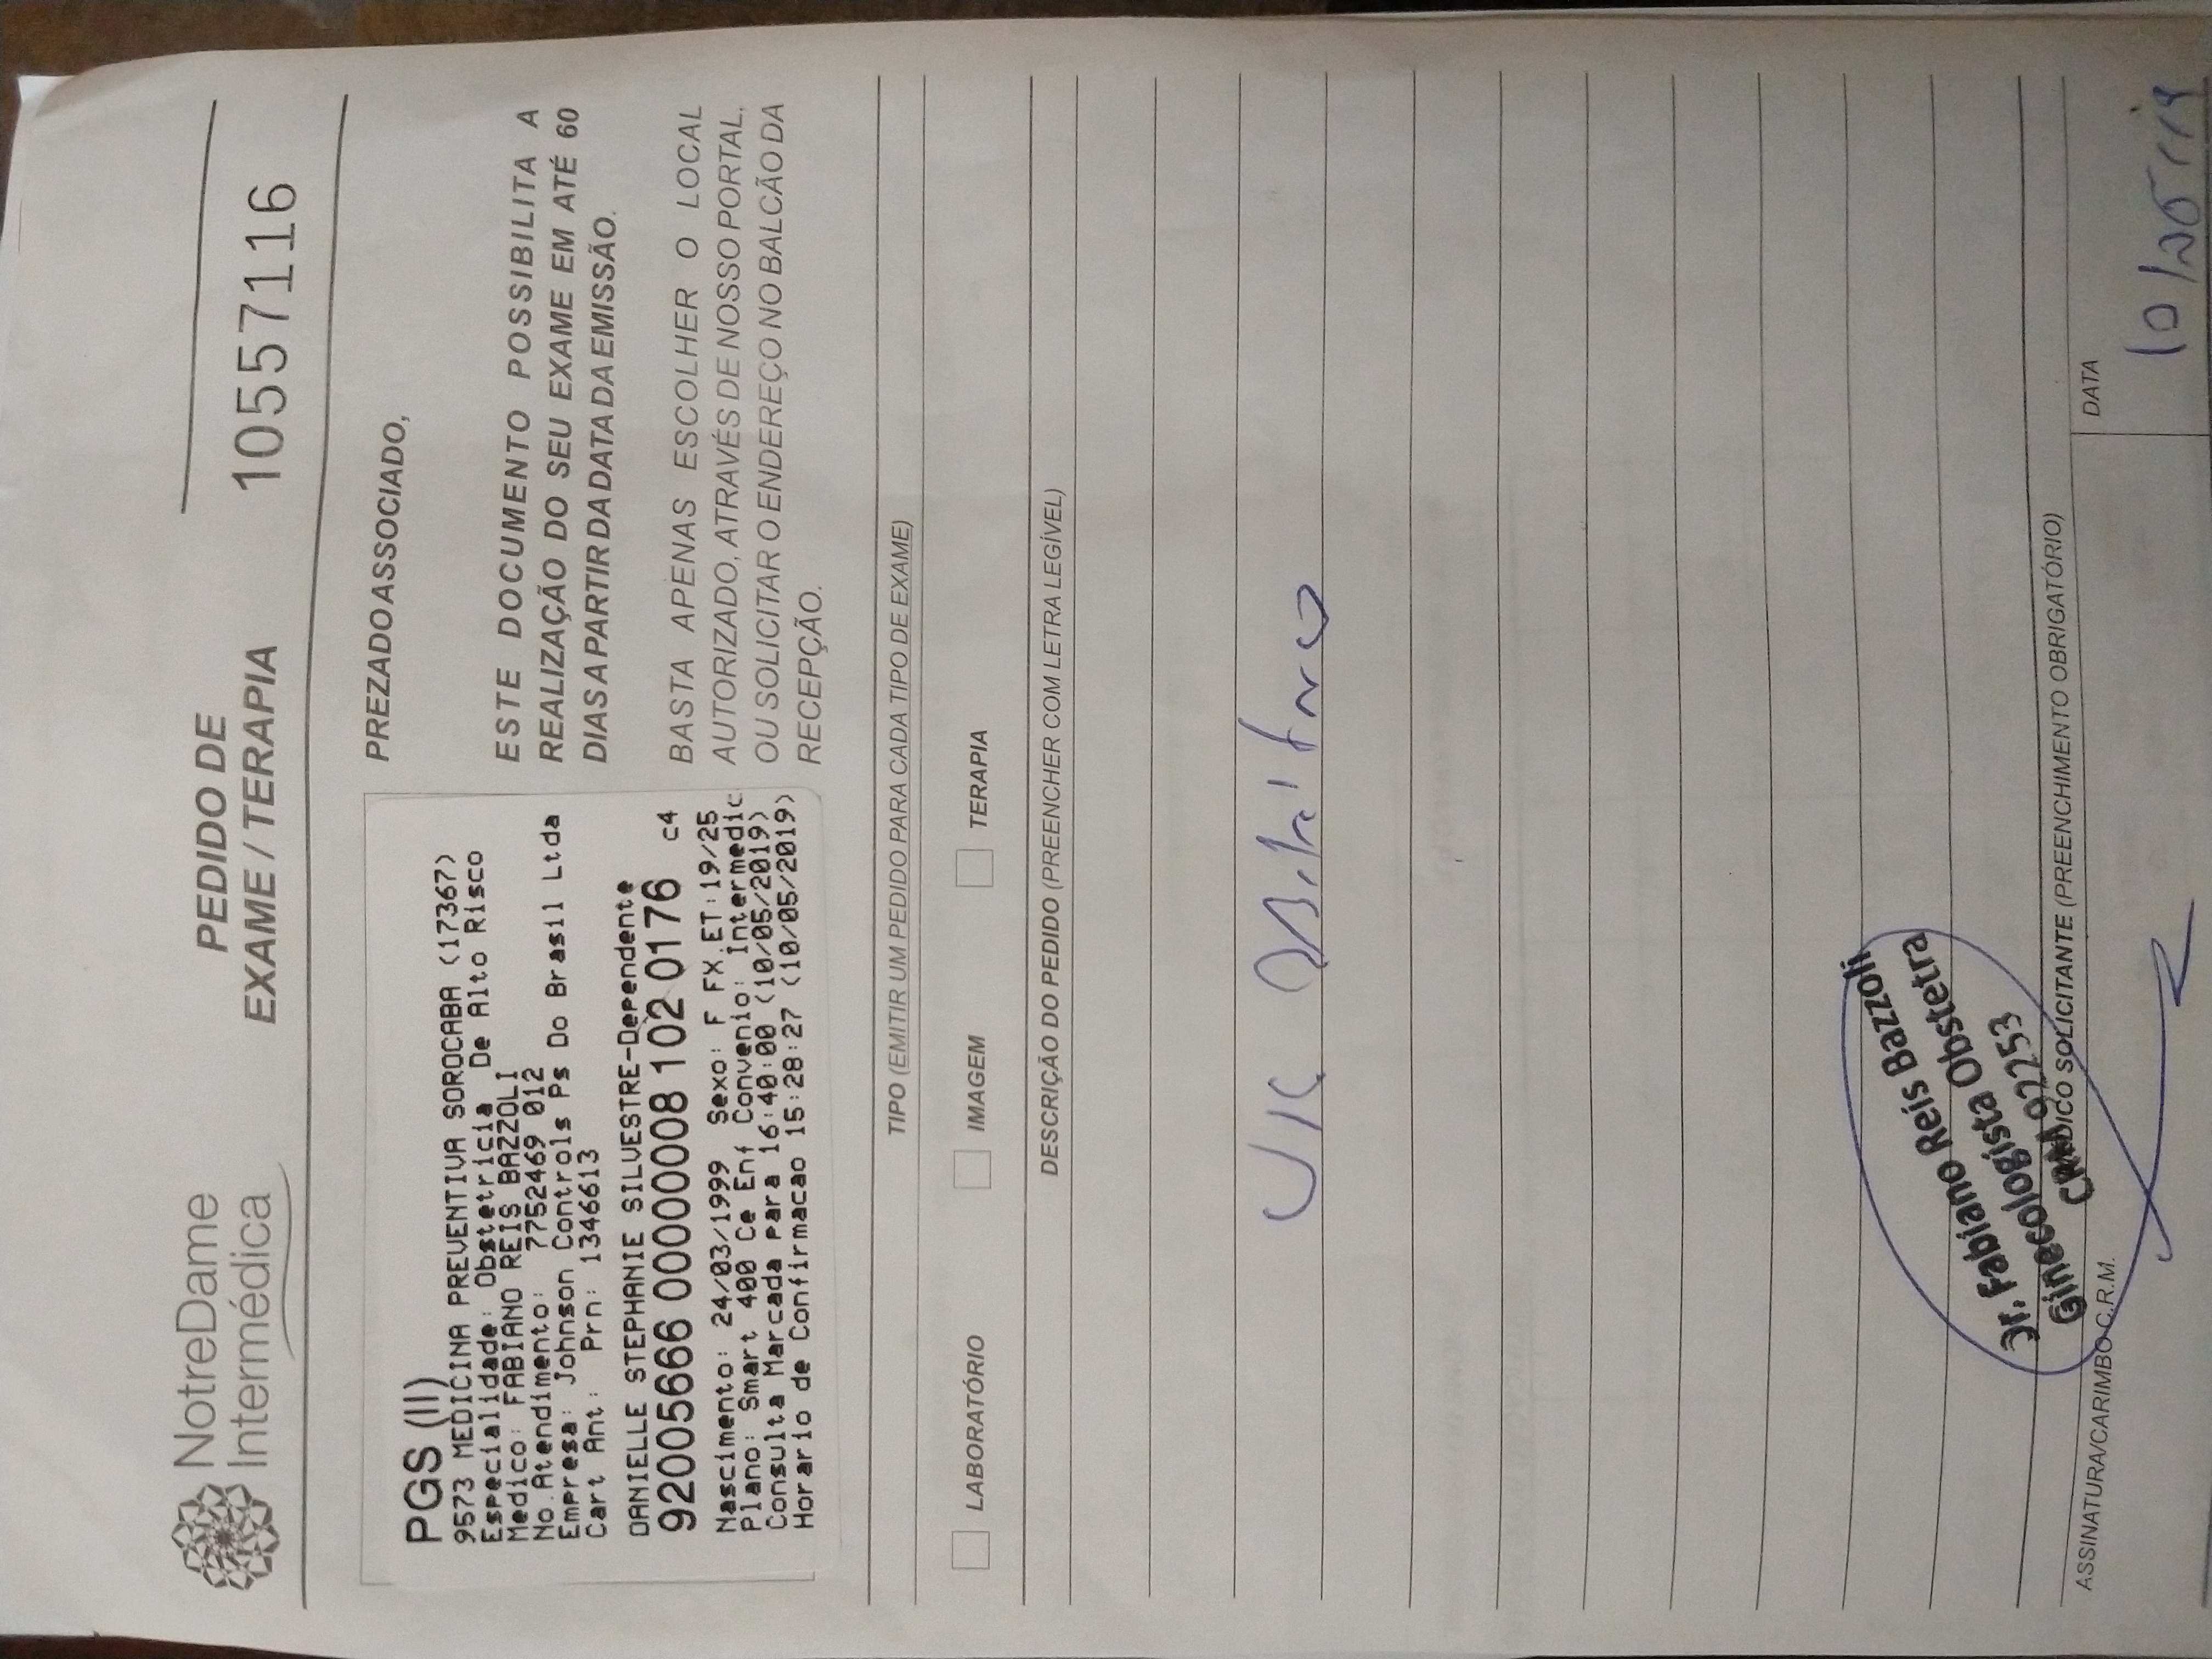 NotreDame
Intermédica
PEDIDO DE
EXAME / TERAPIA
10557116
PGS (II)
9573 MEDICINA PREVENTIVA SOROCABA (17367)
Especialidade: Obstetricia De Alto Risco
Medico: FABIANO REIS BAZZOLI
No.Atendimento: 7752469 012
Empresa: Johnson Controls Ps Do Brasil Ltda
Cart Ant: Prn: 1346613
DANIELLE STEPHANIE SILVESTRE-Dependente
92005666 00000008 102 0176 c4
Nascimento: 24/03/1999 Sexo: F FX.ET:19/25
Plano: Smart 400 Ce Enf Convenio: Intermedic
Consulta Marcada para 16:40:00 (10/05/2019)
Horario de Confirmacao 15:28:27 (10/05/2019)
PREZADO ASSOCIADO,
ESTE DOCUMENTO POSSIBILITA A
REALIZAÇÃO DO SEU EXAME EM ATÉ 60
DIAS A PARTIR DA DATA DA EMISSÃO.
BASTA APENAS ESCOLHER O LOCAL
AUTORIZADO, ATRAVÉS DE NOSSO PORTAL,
OU SOLICITAR O ENDEREÇO NO BALCÃO DA
RECEPÇÃO.
TIPO (EMITIR UM PEDIDO PARA CADA TIPO DE EXAME)
LABORATÓRIO IMAGEM TERAPIA
DESCRIÇÃO DO PEDIDO (PREENCHER COM LETRA LEGÍVEL)
Obstétrico
Dr. Fabiano Reis Bazzoli
Ginecologista Obstetra
CRM 92253
MÉDICO SOLICITANTE (PREENCHIMENTO OBRIGATÓRIO)
ASSINATURA/CARIMBO C.R.M.
DATA
10/05/19